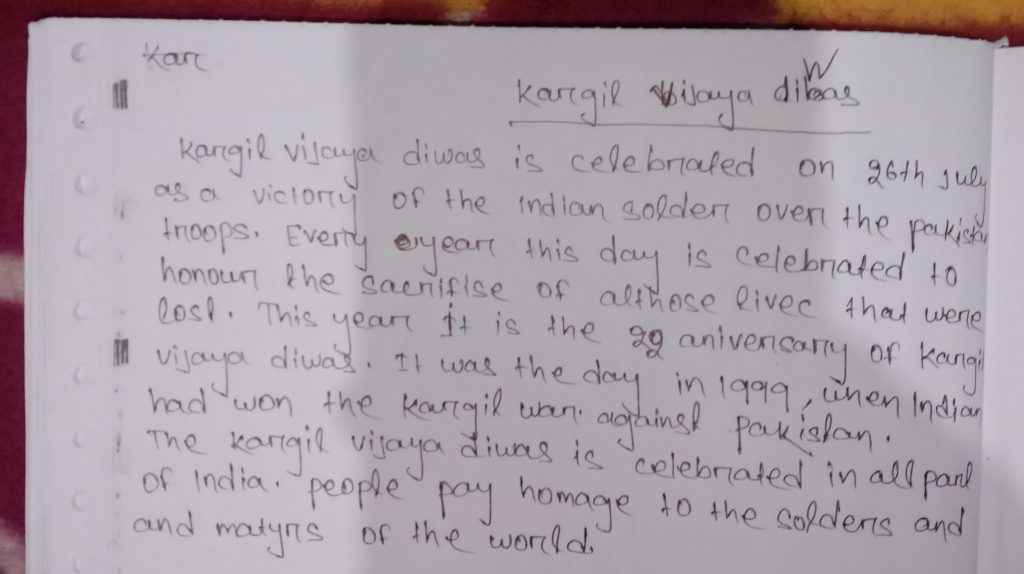 Kar
Kargil vijaya diwas
Kargil vijaya diwas is celebrated on 26th july
as a victory of the indian solder over the pakistan
troops. Every year this day is celebrated to
honour the sacrifise of althose livec that were
lost. This year it is the 22 anivercary of Kargil
vijaya diwas. It was the day in 1999, when Indian
had won the Kargil war against pakistan.
The Kargil vijaya diwas is celebrated in all part
of India. people pay homage to the solders and
and matyrs of the world.